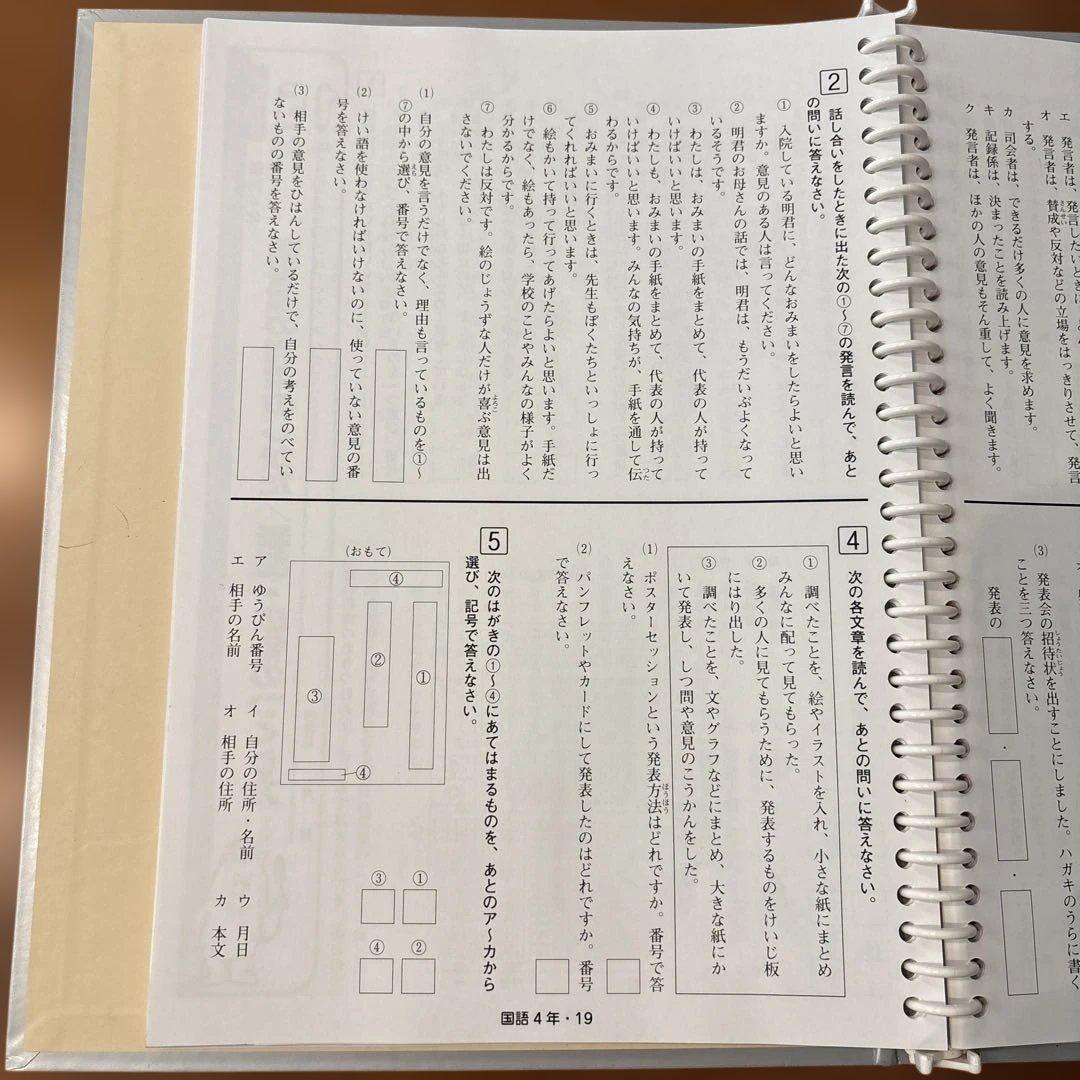 エ　発言者は、発言したいときに
オ　発言者は、賛成や反対などの立場をはっきりさせて、発言
する。
カ　司会者は、できるだけ多くの人に意見を求めます。
キ　記録係は、決まったことを読み上げます。
ク　発言者は、ほかの人の意見もそん重して、よく聞きます。
(3)　発表会の招待状を出すことにしました。ハガキのうらに書く
ことを三つ答えなさい。
発表の　・　・
2　話し合いをしたときに出た次の①〜⑦の発言を読んで、あと
の問いに答えなさい。
①　入院している明君に、どんなおみまいをしたらよいと思い
ますか。意見のある人は言ってください。
②　明君のお母さんの話では、明君は、もうだいぶよくなって
いるそうです。
③　わたしは、おみまいの手紙をまとめて、代表の人が持って
いけばいいと思います。
④　わたしも、おみまいの手紙をまとめて、代表の人が持って
いけばいいと思います。みんなの気持ちが、手紙を通して伝
わるからです。
⑤　おみまいに行くときは、先生もぼくたちといっしょに行っ
てくれればいいと思います。
⑥　絵もかいて持って行ってあげたらよいと思います。手紙だ
けでなく、絵もあったら、学校のことやみんなの様子がよく
分かるからです。
⑦　わたしは反対です。絵のじょうずな人だけが喜ぶ意見は出
さないでください。
(1)　自分の意見を言うだけでなく、理由も言っているものを①〜
⑦の中から選び、番号で答えなさい。
(2)　けい語を使わなければいけないのに、使っていない意見の番
号を答えなさい。
(3)　相手の意見をひはんしているだけで、自分の考えをのべてい
ないものの番号を答えなさい。
4　次の各文章を読んで、あとの問いに答えなさい。
①　調べたことを、絵やイラストを入れ、小さな紙にまとめ
みんなに配って見てもらった。
②　多くの人に見てもらうために、発表するものをけいじ板
にはり出した。
③　調べたことを、文やグラフなどにまとめ、大きな紙にか
いて発表し、しつ問や意見のこうかんをした。
(1)　ポスターセッションという発表方法はどれですか。番号で答
えなさい。
(2)　パンフレットやカードにして発表したのはどれですか。番号
で答えなさい。
5　次のはがきの①〜④にあてはまるものを、あとのア〜カから
選び、記号で答えなさい。
(おもて)
④
①
②
③
④
①　②
③　④
ア　ゆうびん番号　イ　自分の住所・名前　ウ　月日
エ　相手の名前　オ　相手の住所　カ　本文
国語４年・19